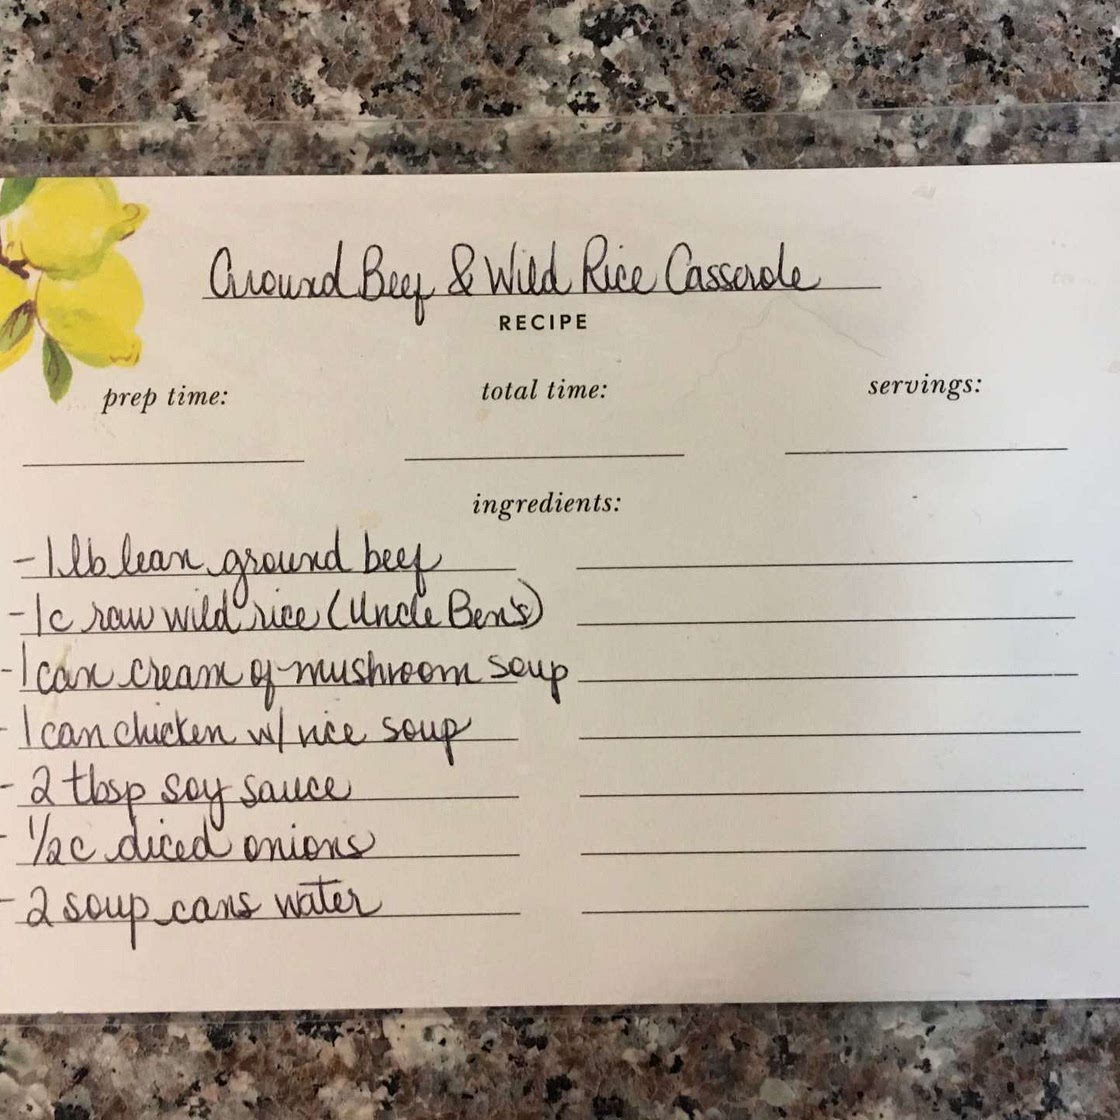 Ground Beef & Wild Rice Casserole
RECIPE
prep time:
total time:
servings:
ingredients:
- 1 lb lean ground beef
- 1c raw wild rice (Uncle Ben's)
- 1 can cream of mushroom soup
- 1 can chicken w/ rice soup
- 2 tbsp soy sauce
- 1/2 c diced onions
- 2 soup cans water